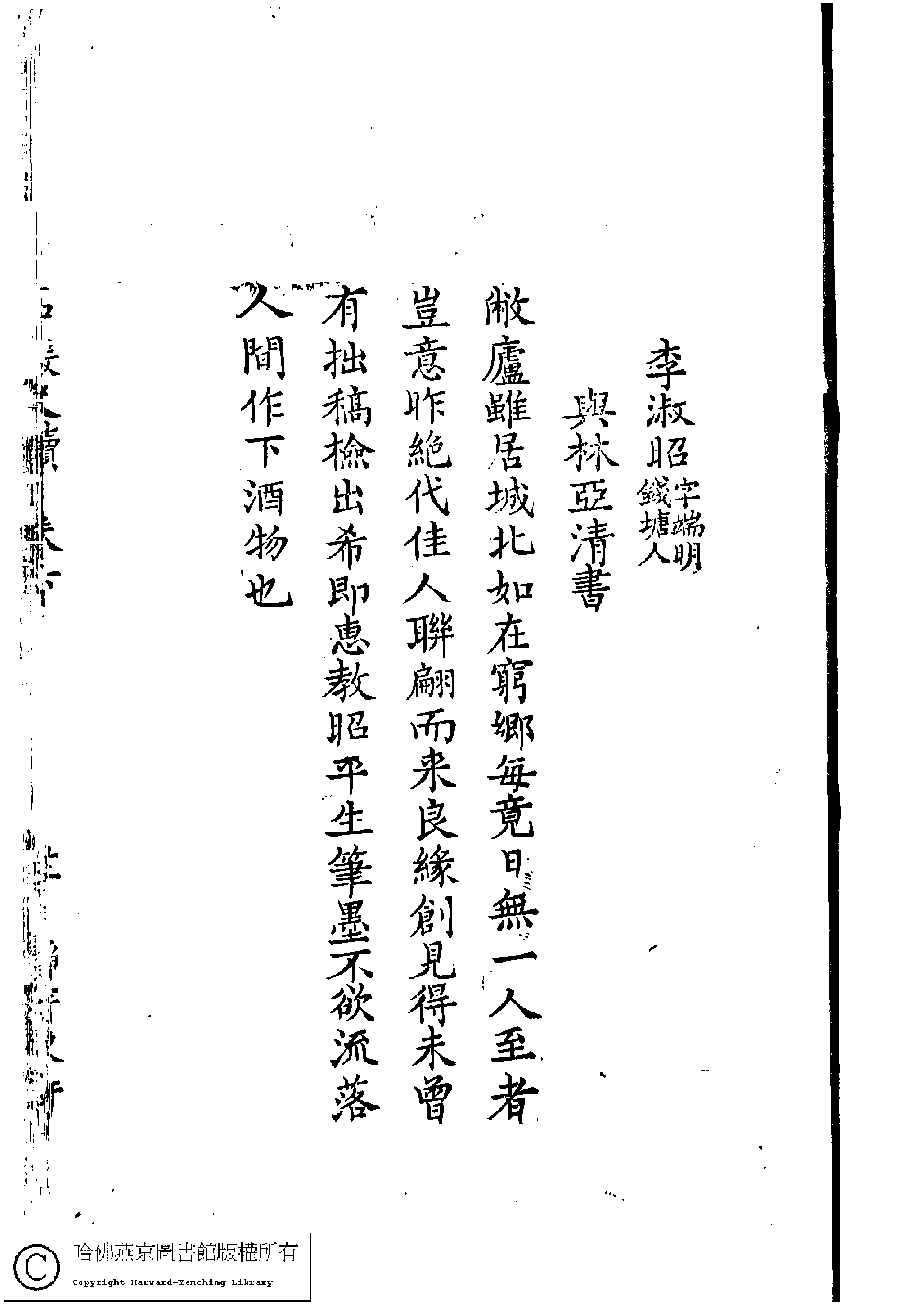 李淑昭字端明錢塘人
與林亞清書
敝廬雖居城北如在窮鄉每竟日無一人至者
豈意昨絕代佳人聯翩而来良緣創見得未曾
有拙稿檢出希即惠教昭平生筆墨不欲流落
人間作下酒物也
哈佛燕京圖書館版權所有
Copyright Harvard-Yenching Library